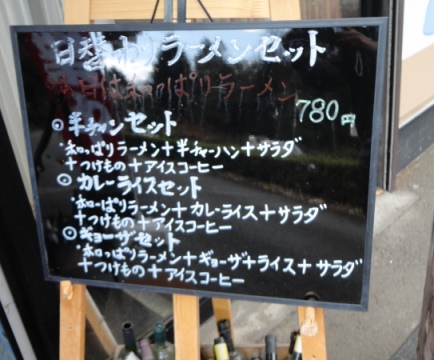 日替わりラーメンセット
本日は和っぱりラーメン
780円
⊙半チャンセット
和っぱりラーメン+半チャーハン+サラダ
+つけもの+アイスコーヒー
⊙カレーライスセット
和っぱりラーメン+カレーライス+サラダ
+つけもの+アイスコーヒー
⊙ギョーザセット
和っぱりラーメン+ギョーザ+ライス+サラダ
+つけもの+アイスコーヒー